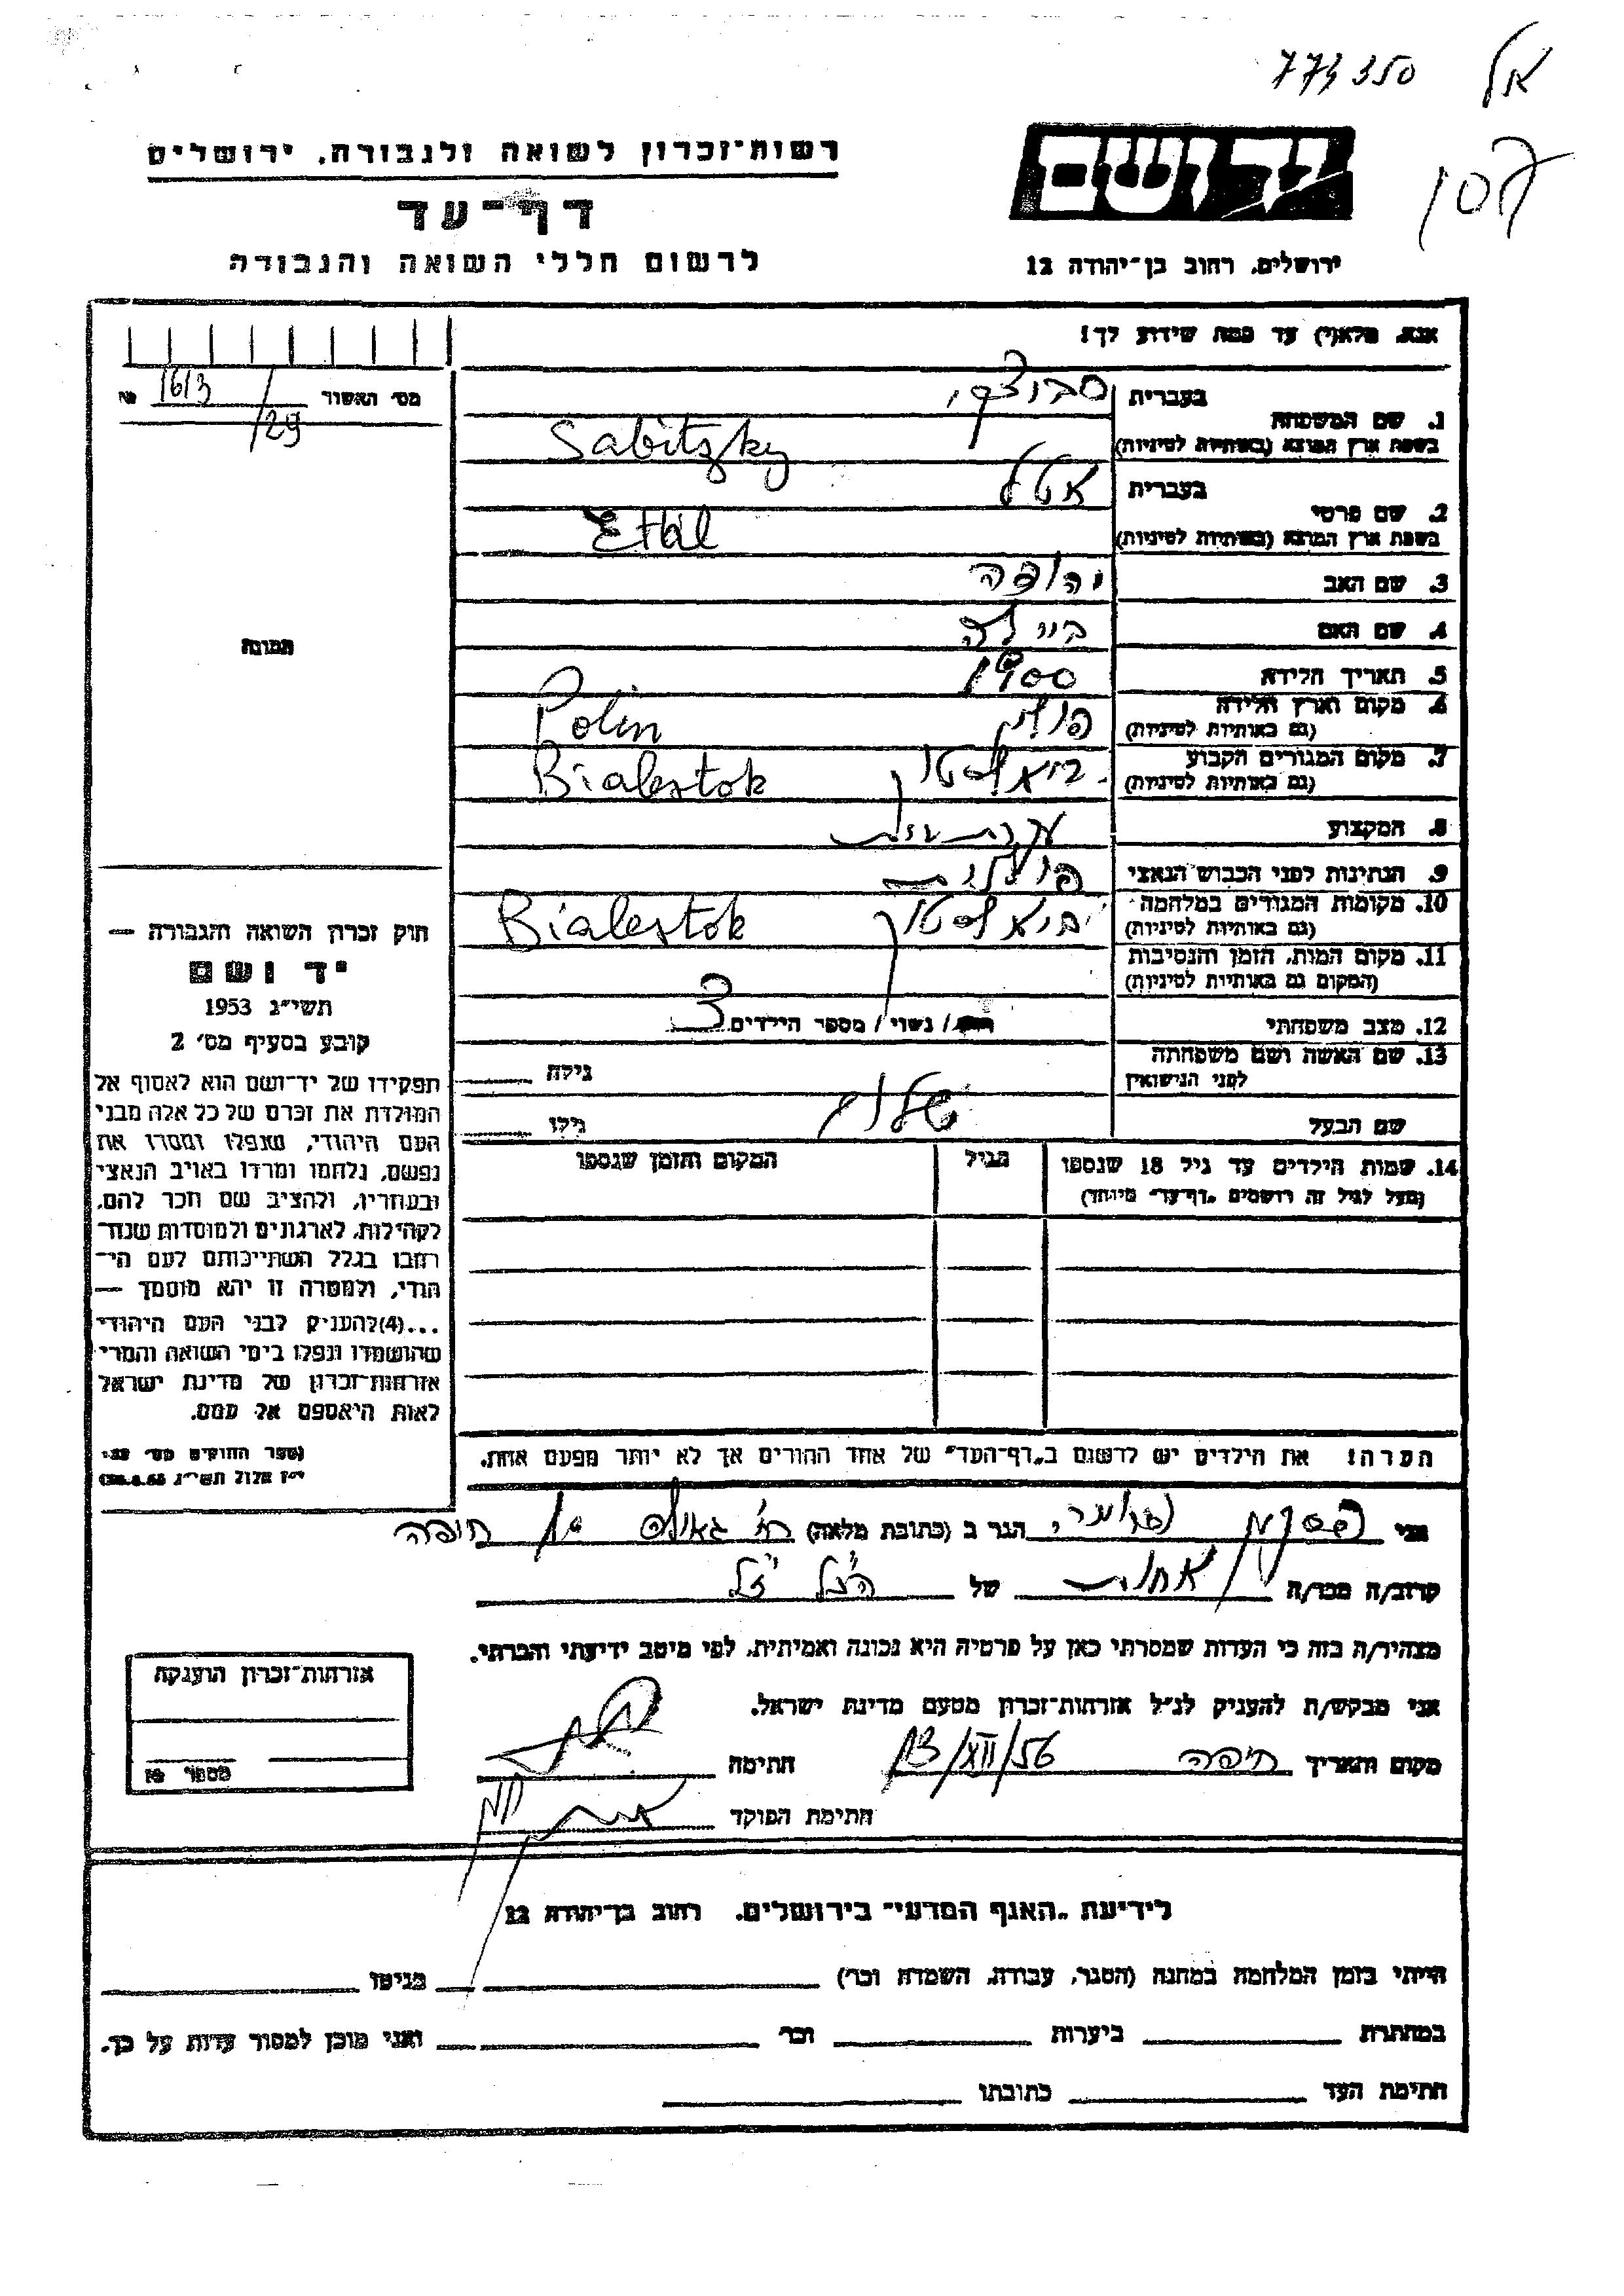 773350
אל
רשות־זכרון לשואה ולגבורה, ירושלים
יד ושם
דף־עד
לרשום חללי השואה והגבורה
ירושלים, רחוב בן־יהודה 12
אנא, מלא(י) עד כמה שידוע לך!
מס׳ האשור 1613/29 №
1. שם המשפחה
בעברית
בשפת ארץ המוצא (באותיות לטיניות) Sabitzky
2. שם פרטי
בעברית אטל
בשפת ארץ המוצא (באותיות לטיניות) Ethil
3. שם האב יהודה
4. שם האם ביילה
5. תאריך הלידה 1900
6. מקום וארץ הלידה פולין Polin
(גם באותיות לטיניות)
7. מקום המגורים הקבוע ביאלסטוק Bialestok
(גם באותיות לטיניות)
8. המקצוע עקרת בית
9. הנתינות לפני הכבוש הנאצי פולנית
10. מקומות המגורים במלחמה ביאלסטוק Bialestok
(גם באותיות לטיניות)
11. מקום המות, הזמן והנסיבות
(המקום גם באותיות לטיניות)
12. מצב משפחתי
רווק / נשוי / מספר הילדים 3
13. שם האשה ושם משפחתה
לפני הנישואין
גילה
שם הבעל
גילו
14. שמות הילדים עד גיל 18 שנספו
(מעל לגיל זה רושמים „דף־עד״ מיוחד)
הגיל
המקום והזמן שנספו
תמונה
חוק זכרון השואה והגבורה —
יד ושם
תשי״ג 1953
קובע בסעיף מס׳ 2
תפקידו של יד־ושם הוא לאסוף אל
המולדת את זכרם של כל אלה מבני
העם היהודי, שנפלו ומסרו את
נפשם, נלחמו ומרדו באויב הנאצי
ובעוזריו, ולהציב שם וזכר להם,
לקהילות, לארגונים ולמוסדות שנח־
רבו בגלל השתייכותם לעם הי־
הודי, ולמטרה זו יהא מוסמך —
...(4)להעניק לבני העם היהודי
שהושמדו ונפלו בימי השואה והמרי
אזרחות־זכרון של מדינת ישראל
לאות היאספם אל עמם.
(ספר החוקים מס׳ 132
י״ז אלול תשי״ג 28.8.53)
הערה! את הילדים יש לרשום ב„דף־העד״ של אחד ההורים אך לא יותר מפעם אחת.
אני הגר ב (כתובת מלאה) חיפה
קרוב/ה מכר/ה אחות של הנ״ל ז״ל
מצהיר/ה בזה כי העדות שמסרתי כאן על פרטיה היא נכונה ואמיתית, לפי מיטב ידיעתי והכרתי.
אני מבקש/ת להעניק לנ״ל אזרחות־זכרון מטעם מדינת ישראל.
מקום ותאריך חיפה 13/XII/56 חתימה
חתימת הפוקד
אזרחות־זכרון הוענקה
מספר №
לידיעת „האגף המדעי״ בירושלים, רחוב בן־יהודה 12
הייתי בזמן המלחמה במחנה (הסגר, עבודה, השמדה וכו׳) בגיטו
במחתרת ביערות וכו׳ ואני מוכן למסור עדות על כך.
חתימת העד כתובתו